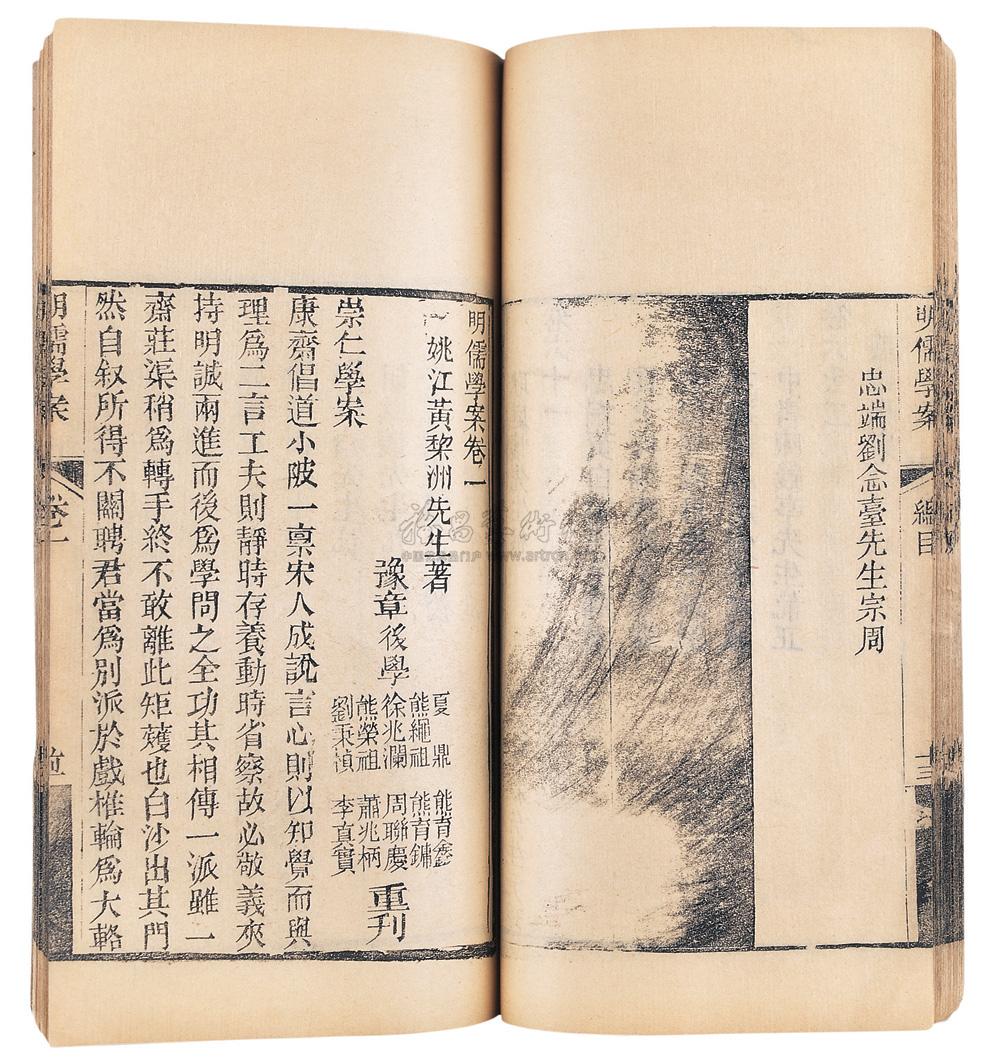 明儒學案
總目
忠端劉念臺先生宗周
明儒學案卷一
姚江黃黎洲先生著
豫章後學
夏鼎
熊育鑫
熊繩祖
熊育鏞
徐兆瀾
周聯慶
熊榮祖
蕭兆柄
劉秉禎
李真實
重刊
崇仁學案
康齋倡道小陂一稟宋人成說言心則以知覺而與
理爲二言工夫則靜時存養動時省察故必敬義夾
持明誠兩進而後爲學問之全功其相傳一派雖一
齋莊渠稍爲轉手終不敢離此矩矱也白沙出其門
然自叙所得不關聘君當爲別派於戲椎輪爲大輅
明儒學案
卷一